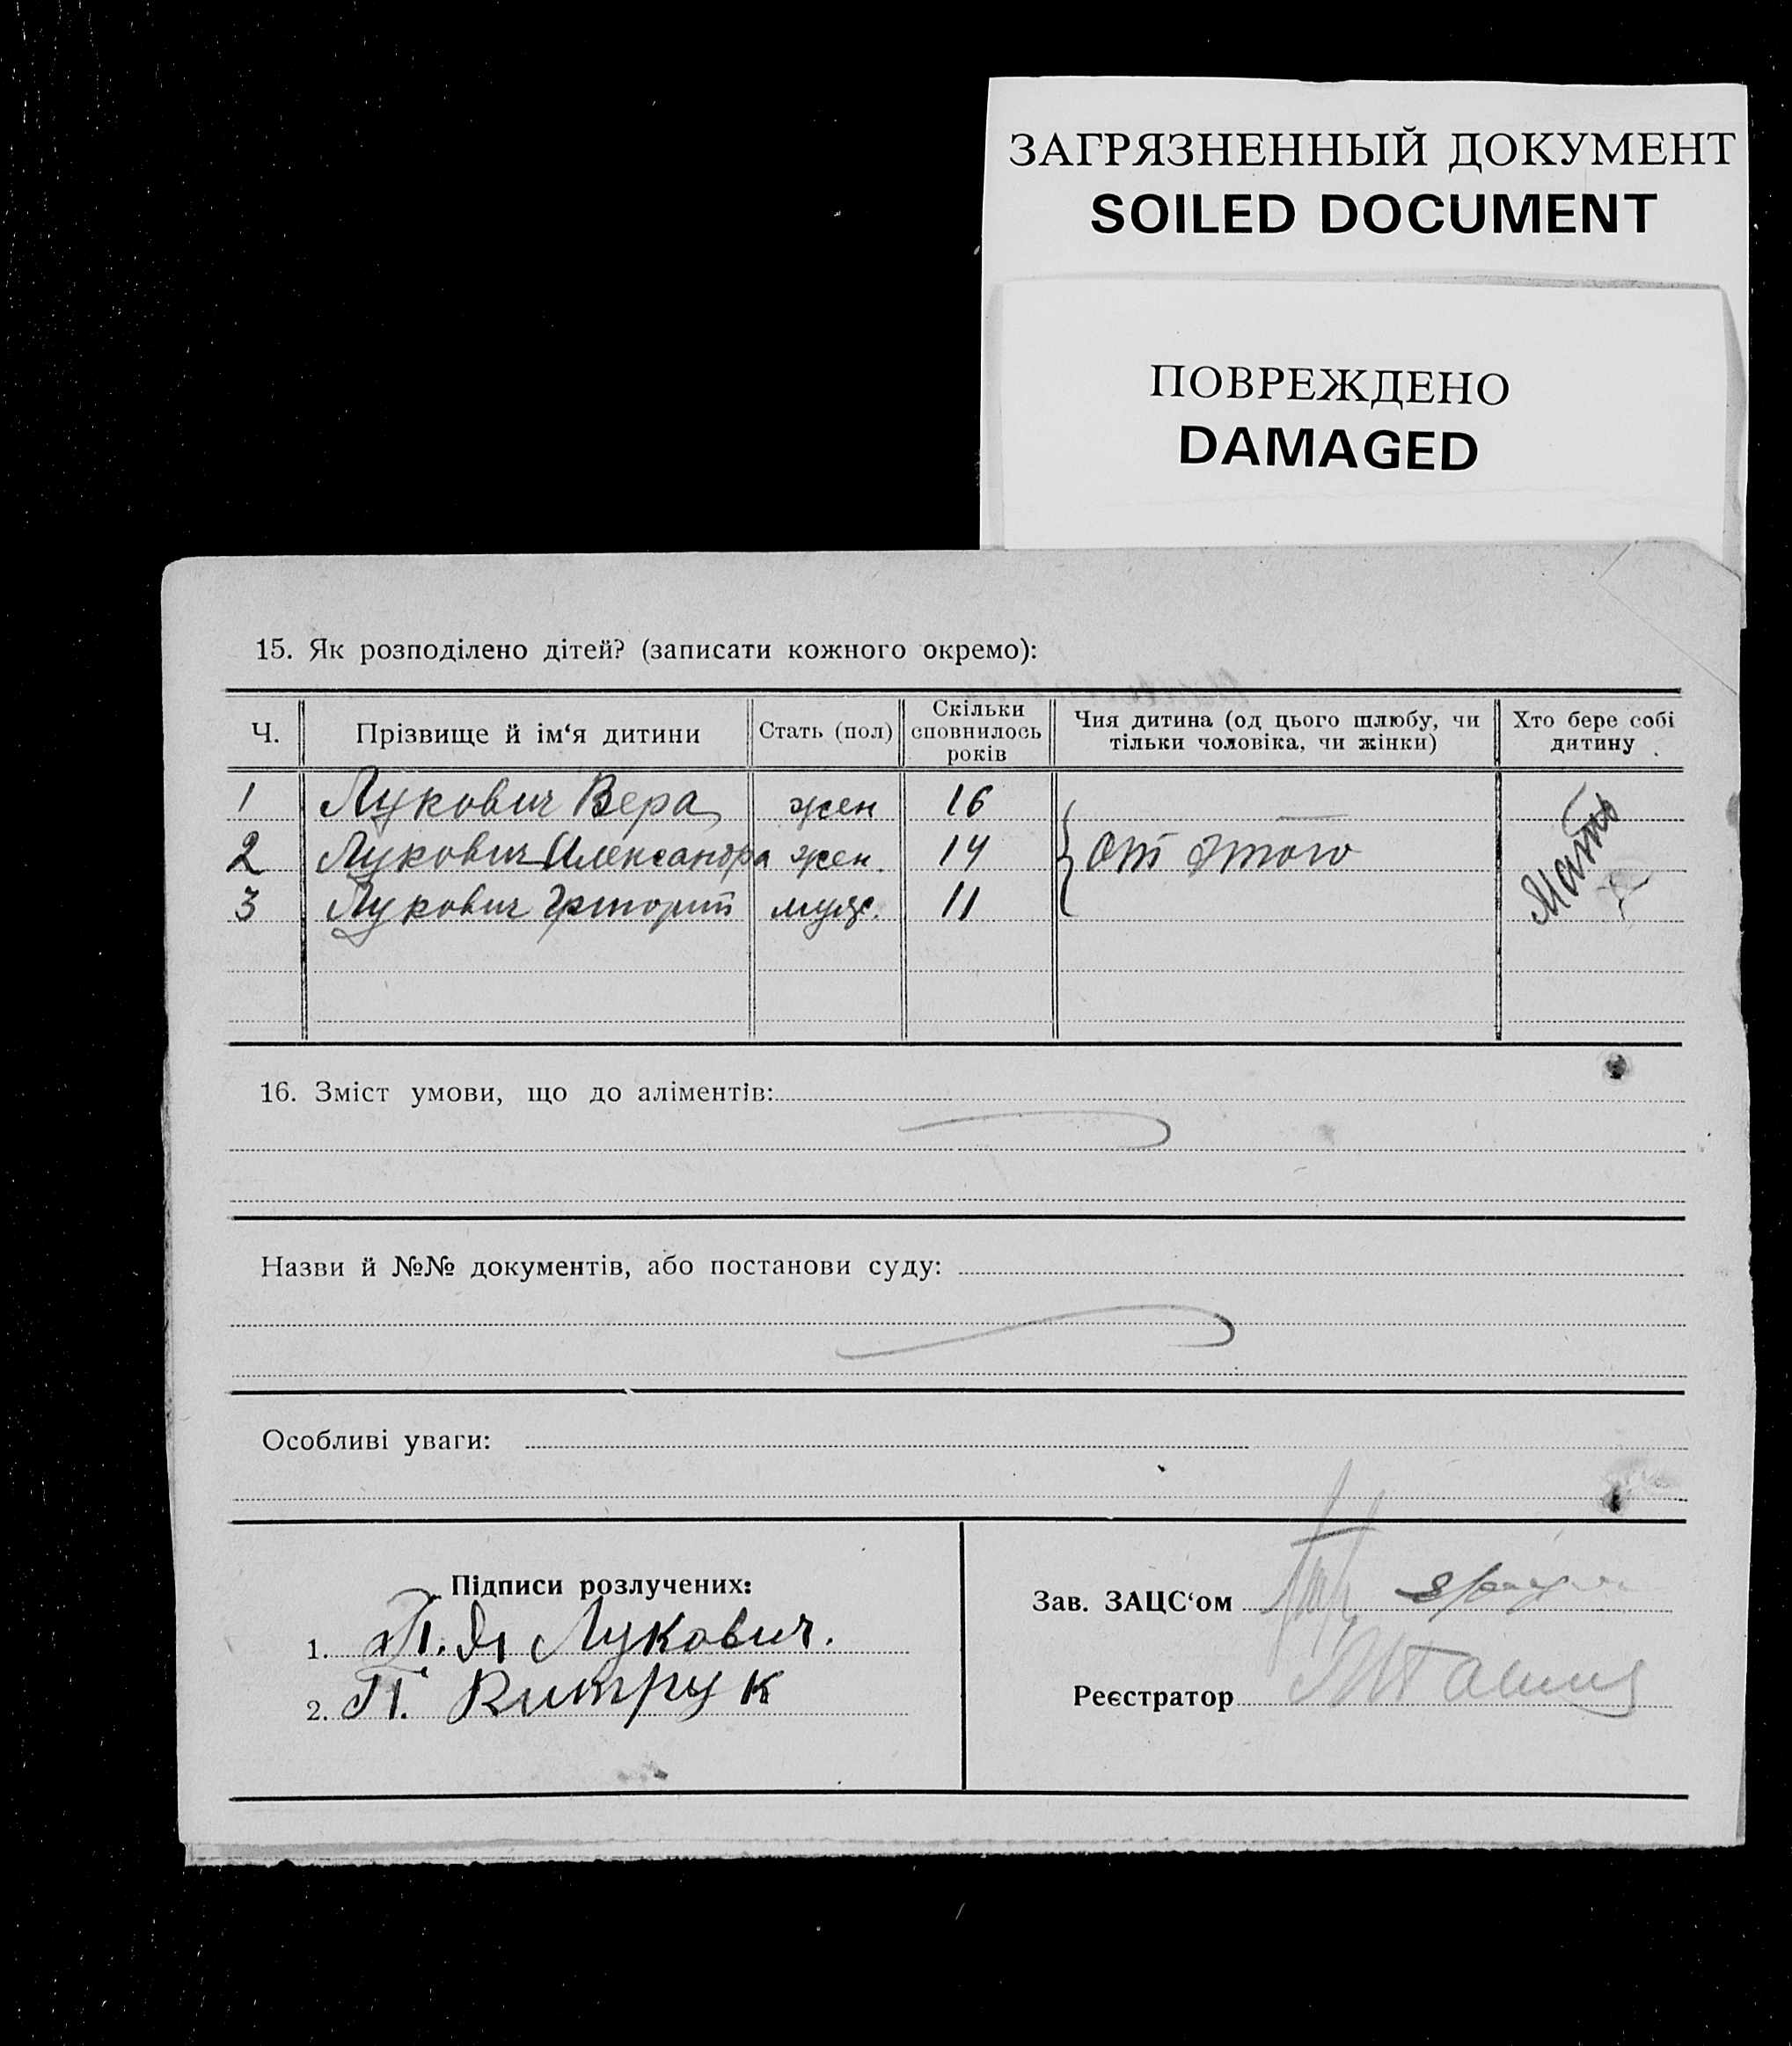 ЗАГРЯЗНЕННЫЙ ДОКУМЕНТ
SOILED DOCUMENT
ПОВРЕЖДЕНО
DAMAGED
15. Як розподілено дітей? (записати кожного окремо):
Ч. Прізвище й ім‘я дитини Стать (пол) Скільки сповнилось років Чия дитина (од цього шлюбу, чи тільки чоловіка, чи жінки) Хто бере собі дитину
1 Лукович Вера жен 16
2 Лукович Александра жен. 14 от этого Мать
3 Лукович Григорий муж. 11
16. Зміст умови, що до аліментів:
Назви й №№ документів, або постанови суду:
Особливі уваги:
Підписи розлучених:
1. П. Я Лукович.
2. П. Витрук
Зав. ЗАЦС‘ом
Реєстратор